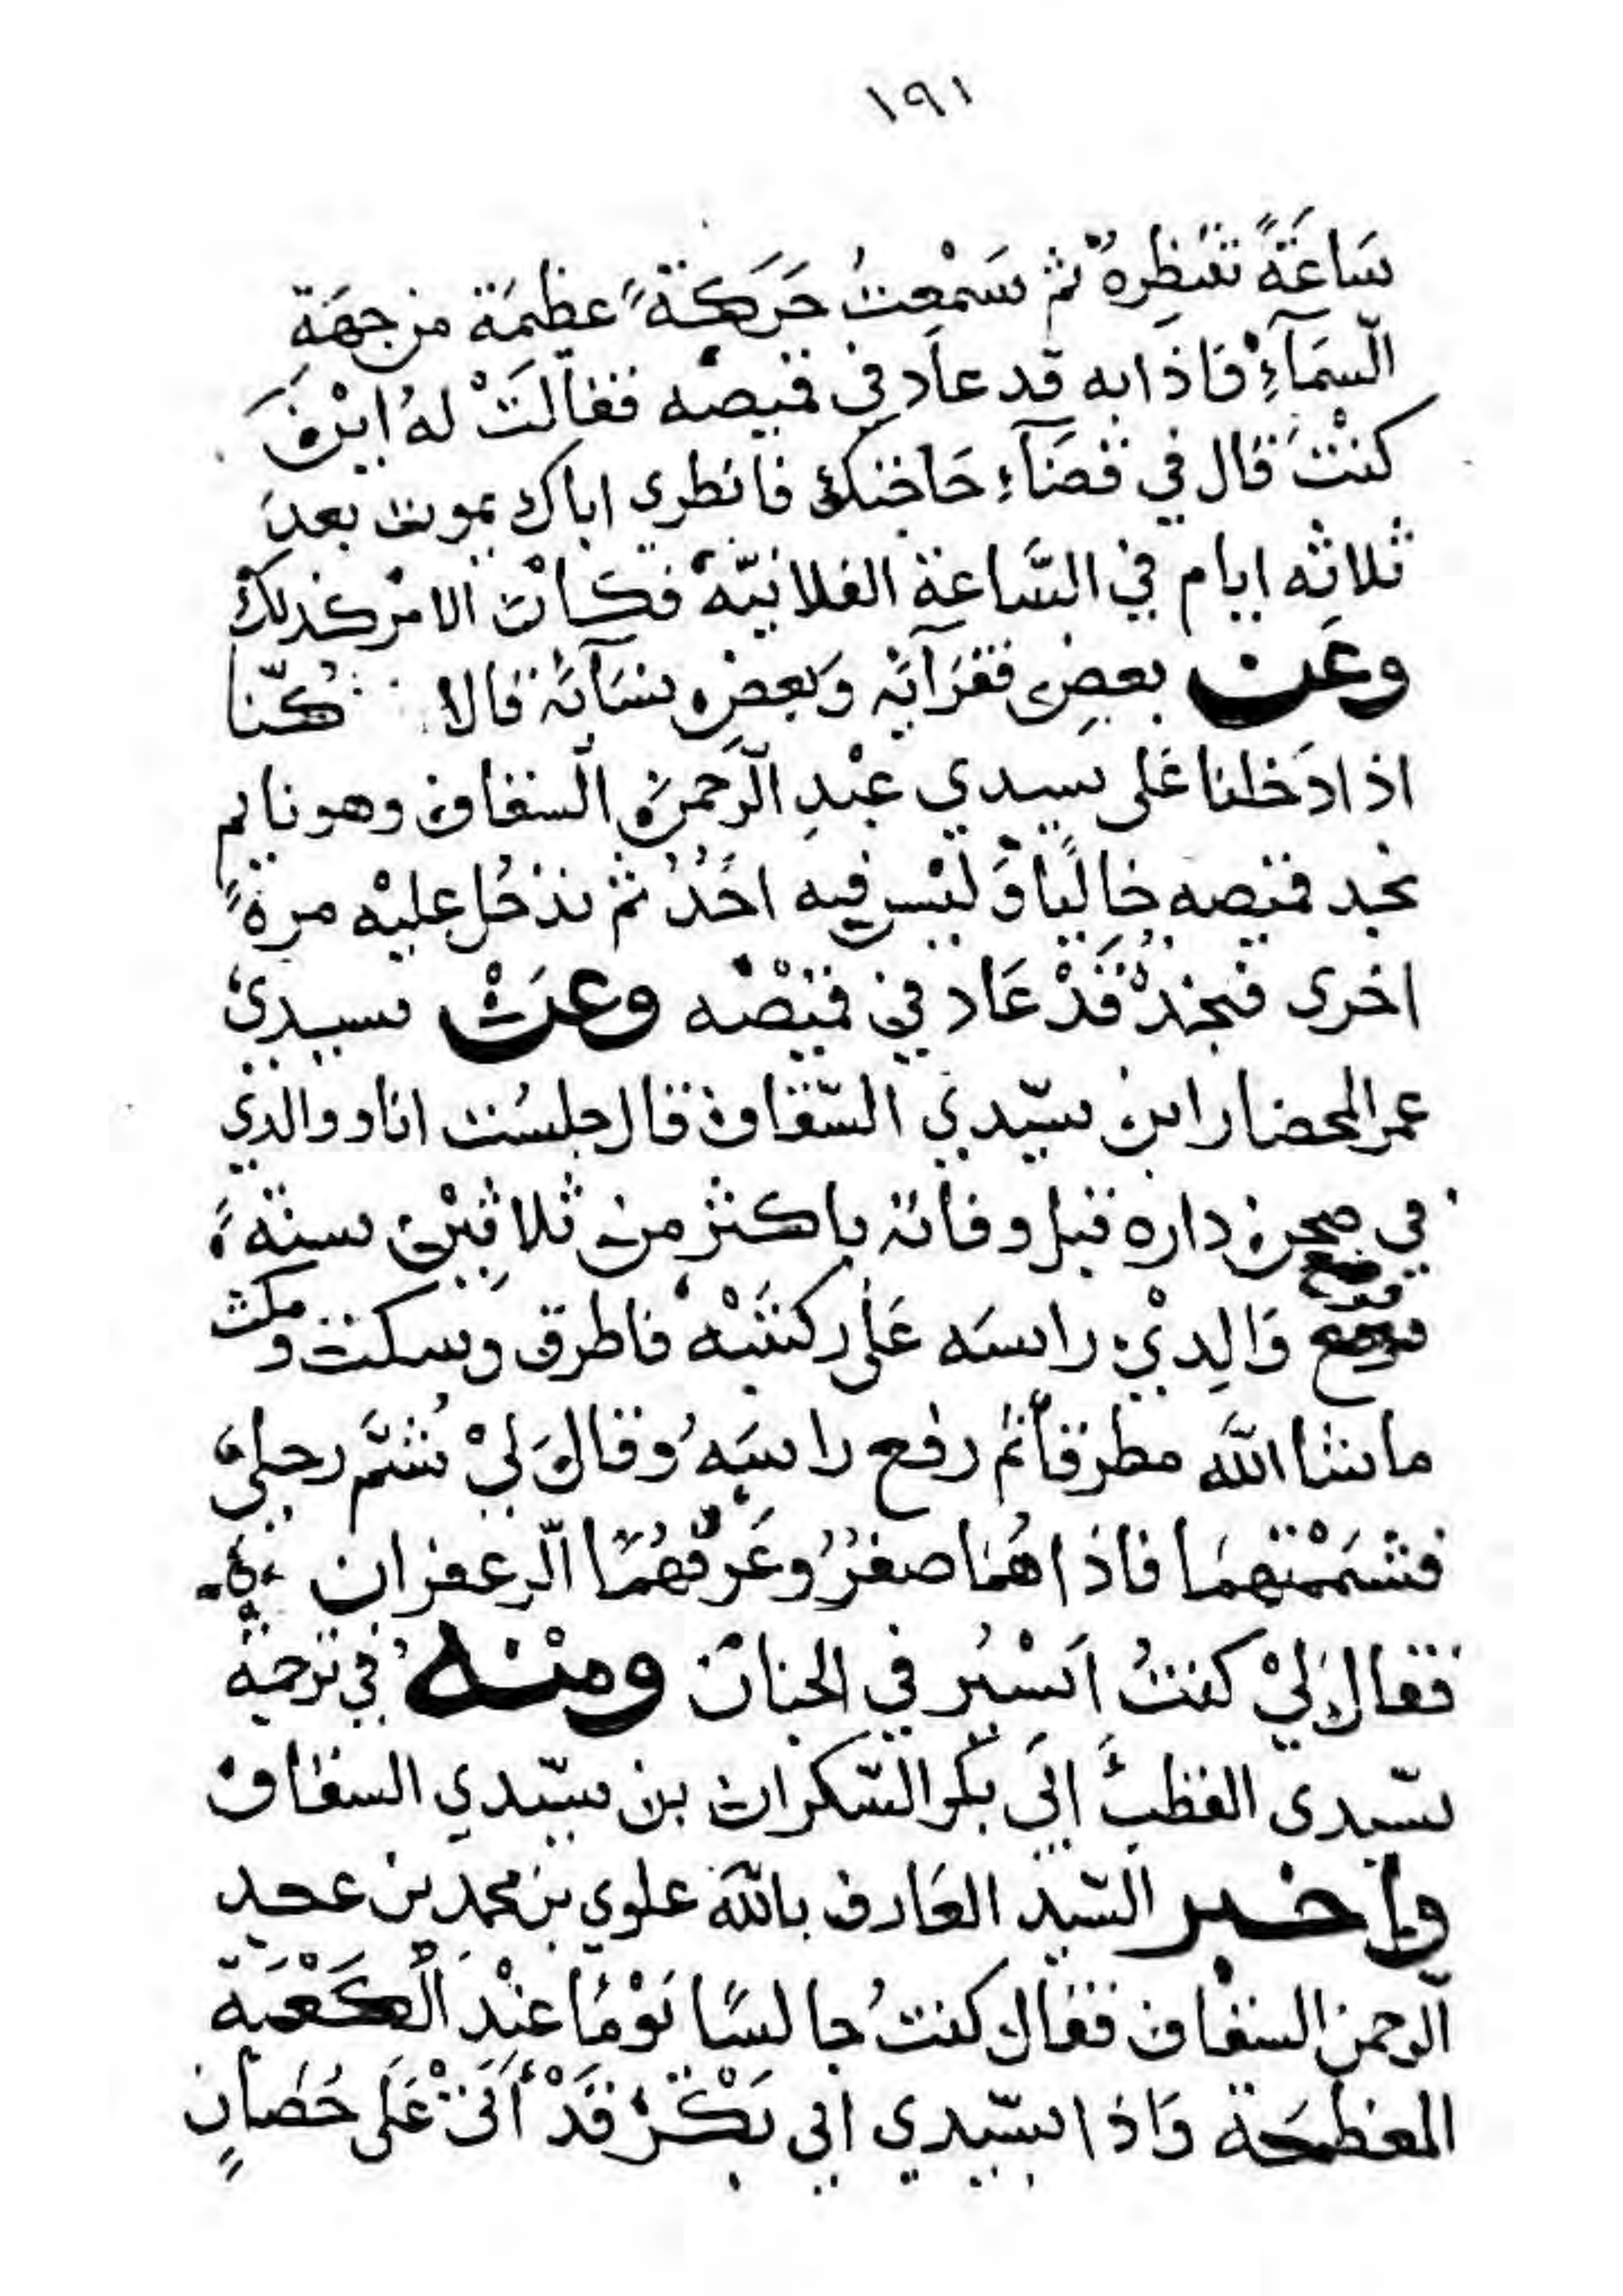 ١٩١
سَاعَةً تنتظِرهُ ثم سَمْعِتُ حَرَكَةً عظيمَة من جهَةِ
السَّمَآءِ فاذا به قد عاد في قميصه فقالَتْ لهُ ايْنَ
كنتَ قال في قضَآءِ حَاجتك فانظري اباك يموت بعدَ
ثلاثه ايام في السَّاعة الفلانيّة فكان الامر كذلك
وعَن بعض فقرَآئه وَبعضِ نسَآئه قالا كُنّا
اذا دَخلنا عَلى سيدي عبْدِ الرَّحمن السقاف وهو نايم
نجد قميصه خاليًا وَليْس فيه احَدُ ثم ندخُل عليْه مرةً
اخرى فنجدهُ قَدْ عَاد في قميْصه وعَنْ سيدي
عمر المحضار ابن سيّدي السّقاف قال جلسْت انا ووالدي
في صحن داره قبل وفاته باكثر من ثلاثيْن سنةً
فوضع وَالِديْ راسَه عَلى ركبتيْه فاطرق وسكت ومكث
ما شا الله مطرقاً ثم رفع راسَهُ وقال لِيْ شُمَّ رجليَ
فشمَمْتهمَا فاذا هُمَا صفرُ وعَرفهُمَا الزعفران
فقال لِيْ كنتُ اَسْيُر في الجنان ومنْه في ترجمة
سيّدى القطب ابي بكر السّكران بن سيّدي السقاف
واخبر السّيد العَارف بالله علوي بن محمد بن عبد
الرحمن السقاف فقال كنتُ جالسًا يَوْمًا عنْدَ الْكَعْبَة
المعظمَة وَاذا بسيّدي ابي بَكْر قَدْ أتىْ عَلَى حُصَانٍ